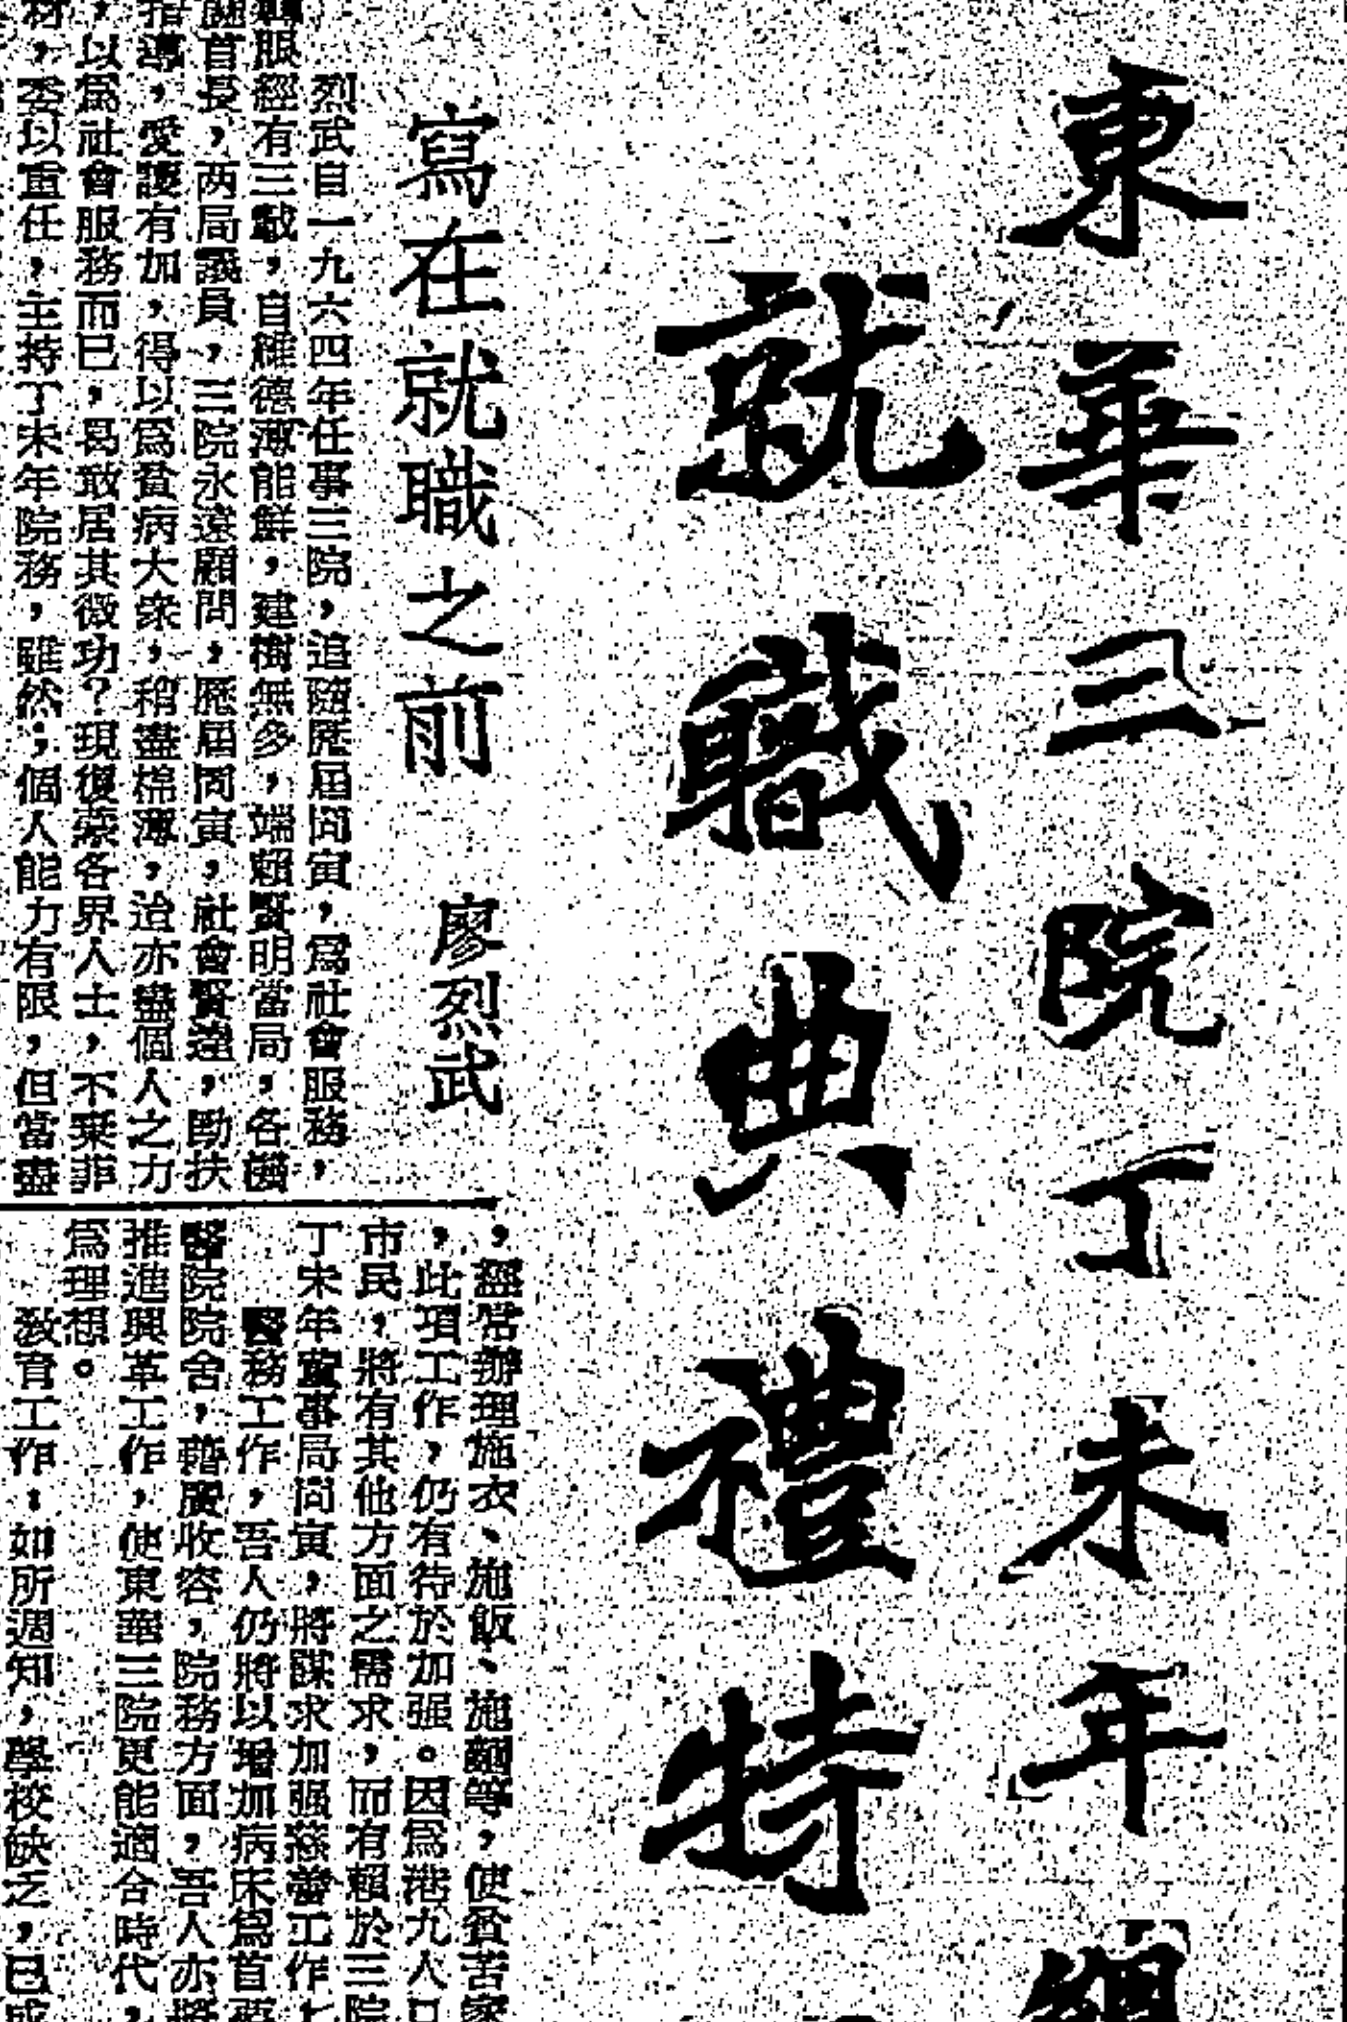 東華三院丁未年
就職典禮特
寫在就職之前 廖烈武
烈武自一九六四年任事三院，追隨歷屆同寅，為社會服務，
服經有三載，自維德薄能鮮，建樹無多，端賴賢明當局，各
首長，两局議員，三院永遠顧問，歷屆同寅，社會賢達，助扶
指導，愛護有加，得以為貧病大衆，稍盡棉薄，迨亦盡個人之力
，以為社會服務而已，曷敢居其微功？現復蒙各界人士，不棄菲
材，委以重任，主持丁未年院務，雖然；個人能力有限，但當盡
，經常辦理施衣、施飯、施麵等，使貧苦家
，此項工作，仍有待於加强。因為港九人口
市民，將有其他方面之需求，而有賴於三院
丁未年董事局同寅，將謀求加强慈善工作
醫務工作，吾人仍將以增加病床為首要
醫院院舍，藉廣收容，院務方面，吾人亦將
推進興革工作，使東華三院更能適合時代，
為理想。
教育工作：如所週知，學校缺乏，已成